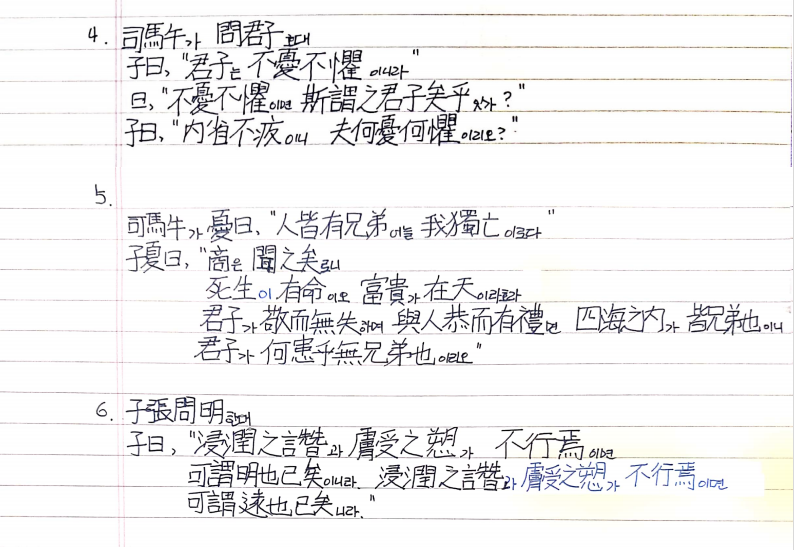 4. 司馬午가 問君子한대
子曰, "君子는 不憂不懼이니라"
曰, "不憂不懼이면 斯謂之君子矣乎잇가?"
子曰, "内省不疚이니 夫何憂何懼이리오?"
5.
司馬牛가 憂曰, "人皆有兄弟이늘 我獨亡이로다"
子夏曰, "商은 聞之矣로니
死生이 有命이오 富貴가 在天이라호라
君子가 敬而無失하며 與人恭而有禮면 四海之内가 皆兄弟也이니
君子가 何患乎無兄弟也이리오"
6. 子張問明한대
子曰, "浸潤之譖과 膚受之愬가 不行焉이면
可謂明也已矣이니라. 浸潤之譖과 膚受之愬가 不行焉이면
可謂遠也已矣니라."